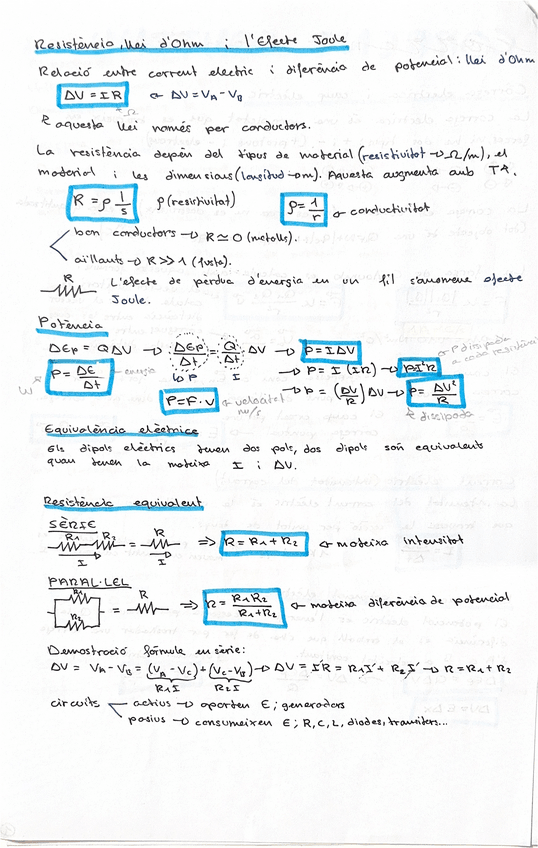 Resistència, llei d'Ohm i l'Efecte Joule
Relació entre corrent electric i diferència de potencial: llei d'Ohm
ΔV = I R → ΔV = VA - VB
↳ Ω
aquesta llei només per conductors.
La resistència depèn del tipus de material (resistivitat → Ω/m), el
material i les dimensions (longitud → m). Aquesta augmenta amb Tª.
R = ρ l/s ρ (resistivitat) ρ = 1/r → conductivitat
bon conductors → R ≃ 0 (metalls).
aïllants → R >> 1 (fusta).
R L'efecte de pèrdua d'energia en un fil s'anomena efecte
Joule.
Potència
ΔEp = Q ΔV → ΔEp/Δt = Q/Δt · ΔV → P = I ΔV
P I
P = ΔE/Δt → energia
W
→ P = I (IR) → P I²R
→ P dissipada a cada resistència
P = F · v → velocitat m/s
→ P = (ΔV/R) ΔV → P = ΔV²/R
dissipada
Equivalència elèctrica
Els dipols elèctrics tenen dos pols, dos dipols són equivalents
quan tenen la mateixa I i ΔV.
Resistència equivalent
SÈRIE
R1 R2 = R ⇒ R = R1 + R2 → mateixa intensitat
I I
PARAL·LEL
R1 R2 = R ⇒ R = R1R2/R1+R2 → mateixa diferència de potencial
Demostració fórmula en sèrie:
ΔV = VA - VB = (VA - VC) + (VC - VB) → ΔV = IR = R1I + R2I → R = R1 + R2
R1I R2I
circuits actius → aporten E; generadors
pasius → consumeixen E; R, C, L, diodes, transitors...